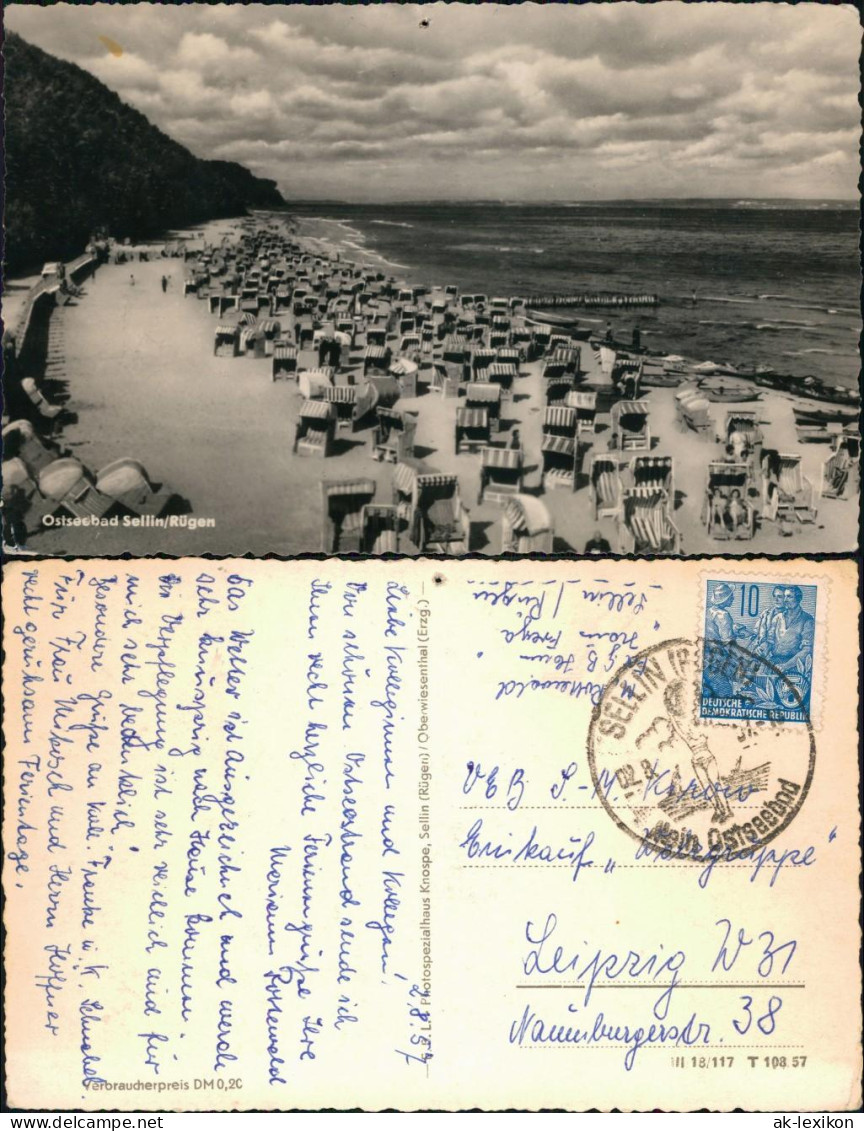 Ostseebad Sellin/Rügen
Liebe Kolleginnen und Kollegen!
2.8.57
Vom schönen Ostseestrand sende ich
Ihnen recht herzliche Feriengrüße Ihre
Mariann
Das Wetter ist ausgezeichnet und werde
sehr knusprig nach Hause kommen.
Die Verpflegung ist sehr reichlich und für
mich sehr
Besondere Grüße an Koll. Franke u. K.
Für Frau und Herrn Höppner
recht geruhsame Ferientage.
Verbraucherpreis DM 0,20
Photospezialhaus Knospe, Sellin (Rügen) / Oberwiesenthal (Erzg.)
FDGB Heim
"Frau Freya
Sellin / Rügen
10
DEUTSCHE
DEMOKRATISCHE REPUBLIK
SELLIN (RÜGEN)
Mein Ostseebad
VEB
Einkauf "
Leipzig W 31
Naumburgerstr. 38
III 18/117 T 108 57
ak-lexikon